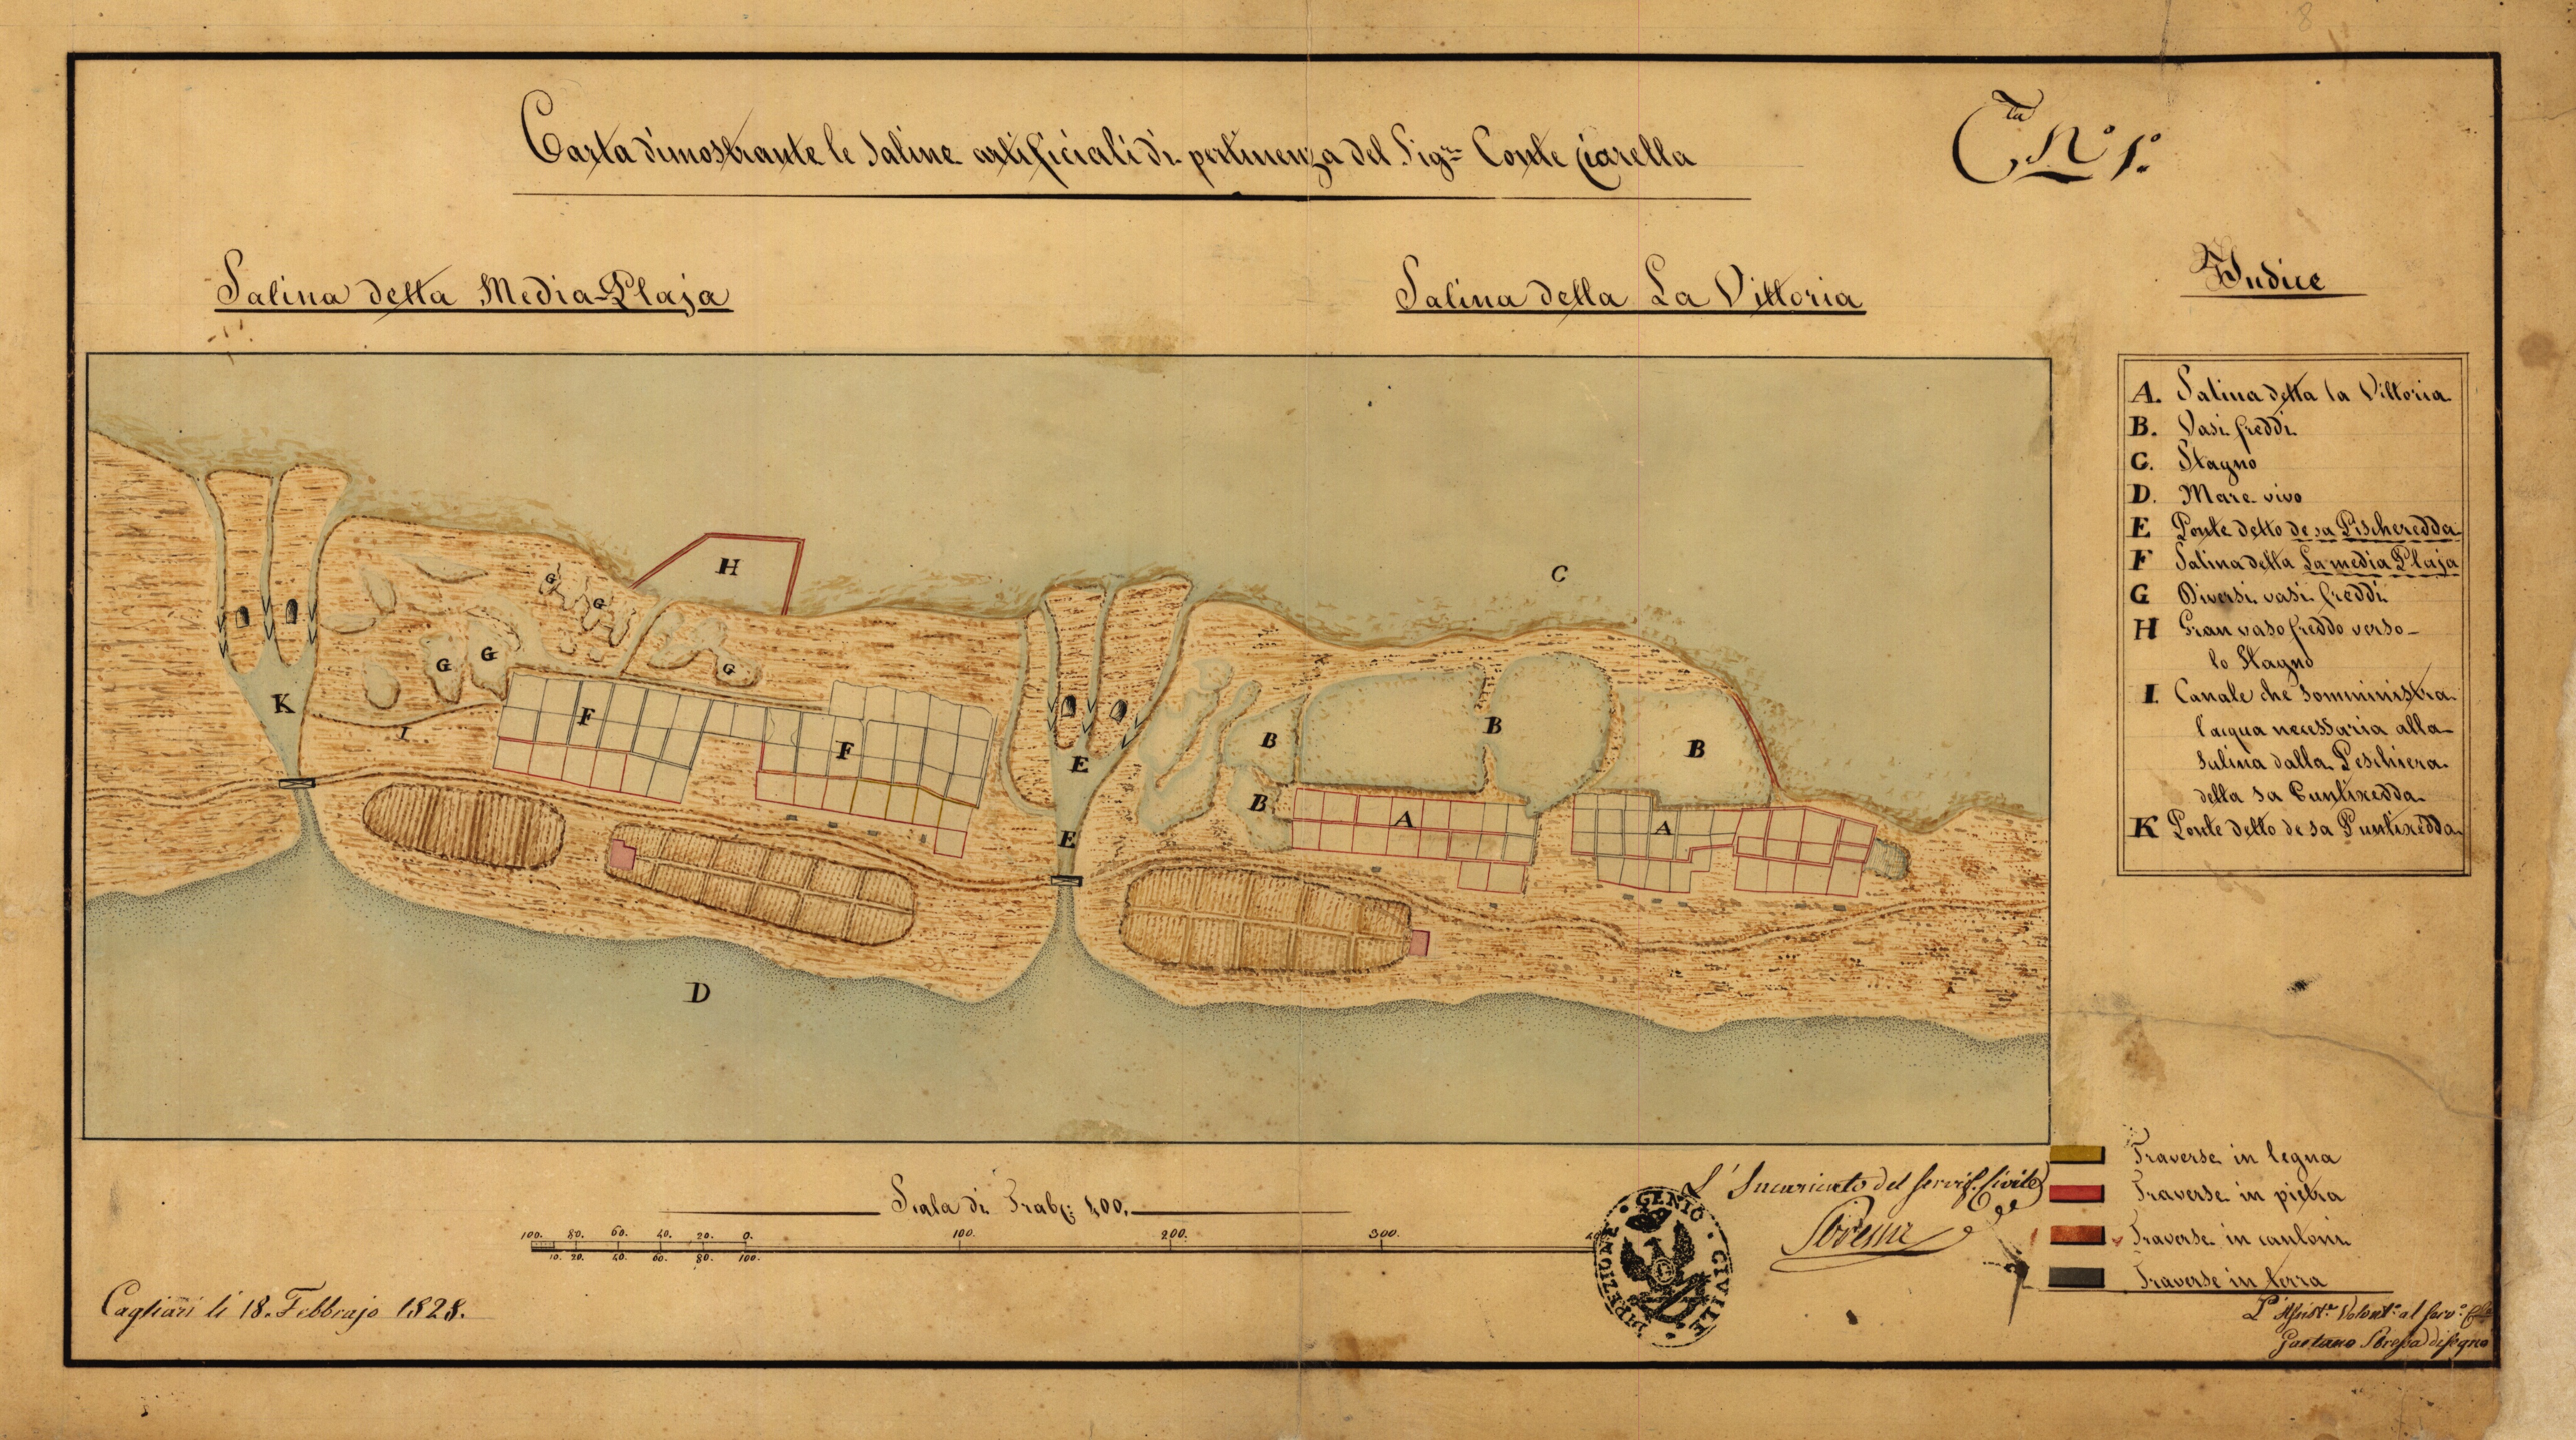 8
Carta dimostrante le Saline artificiali di pertinenza del Sig.re Conte Ciarella
C.ta N.° 1.°
Salina detta Media-Plaja
Salina detta La Vittoria
Indice
A. Salina detta la Vittoria
B. Vasi freddi
C. Stagno
D. Mare vivo
E Ponte detto de sa Pischeredda
F Salina detta La media Plaja
G Diversi vasi freddi
H Gran vaso freddo verso
lo Stagno
I. Canale che somministra
l'acqua necessaria alla
Salina dalla Peschiera
della sa Puntixedda
K Ponte detto de sa Puntixedda
H
C
G
G
G
G
G
K
I.
F
F
E
E
B
B
B
B
A
A
D
Traverse in legna
Traverse in pietra
Traverse in cantoni
Traverse in terra
Scala di Trab: 400.
100. 80. 60. 40. 20. 0. 100. 200. 300.
10. 20. 40. 60. 80. 100.
L'Incaricato del Serviz. Civile
DIREZIONE · GENIO · CIVILE
Cagliari li 18. Febbrajo 1828.
L'Assist.e Volont.o al Serv.o
Gaetano disegnò